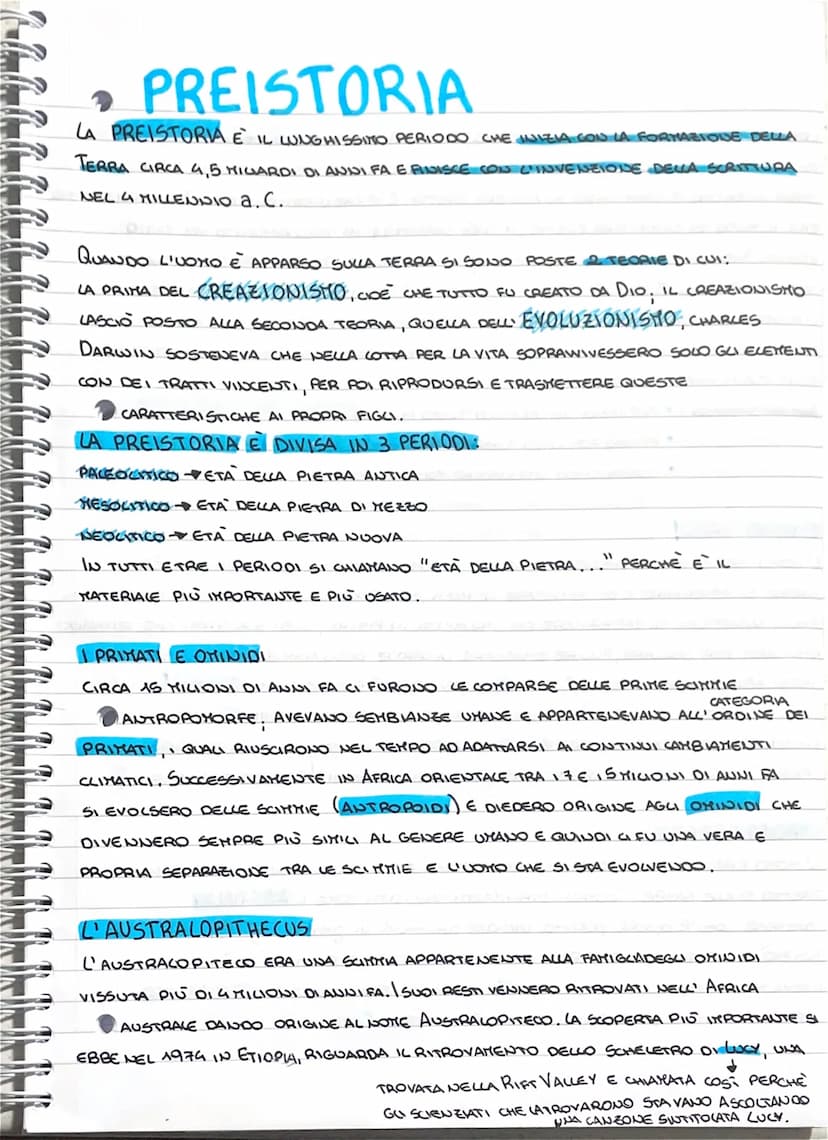 PREISTORIA
LA PREISTORIA È IL LUNGHISSIMO PERIODO CHE INIZIA CON LA FORMAZIONE DELLA
TERRA CIRCA 4,5 MILIARDI DI ANNI FA E FINISCE CON L'INVENZIONE DELLA SCRITTURA
NEL 4 MILLENNIO a.C.
QUANDO L'UOMO È APPARSO SULLA TERRA SI SONO POSTE 2 TEORIE DI CUI:
LA PRIMA DEL CREAZIONISMO, CIOÈ CHE TUTTO FU CREATO DA DIO; IL CREAZIONISMO
LASCIÒ POSTO ALLA SECONDA TEORIA, QUELLA DELL'EVOLUZIONISMO, CHARLES
DARWIN SOSTENEVA CHE NELLA LOTTA PER LA VITA SOPRAWIVESSERO SOLO GLI ELEMENTI
CON DEI TRATTI VINCENTI, PER POI RIPRODURSI E TRASMETTERE QUESTE
CARATTERISTICHE AI PROPRI FIGLI.
LA PREISTORIA È DIVISA IN 3 PERIODI:
PALEOLITICO → ETÀ DELLA PIETRA ANTICA
MESOLITICO → ETÀ DELLA PIETRA DI MEZZO
NEOLITICO → ETÀ DELLA PIETRA NUOVA
IN TUTTI E TRE I PERIODI SI CHIAMANO "ETÀ DELLA PIETRA..." PERCHÈ È IL
MATERIALE PIÙ IMPORTANTE E PIÙ USATO.
I PRIMATI E OMINIDI
CIRCA 15 MILIONI DI ANNI FA CI FURONO LE COMPARSE DELLE PRIME SCIMMIE
CATEGORIA
ANTROPOMORFE; AVEVANO SEMBIANZE UMANE E APPARTENEVANO ALL'ORDINE DEI
PRIMATI, I QUALI RIUSCIRONO NEL TEMPO AD ADATTARSI AI CONTINUI CAMBIAMENTI
CLIMATICI. SUCCESSIVAMENTE IN AFRICA ORIENTALE TRA I 7 E I 5 MILIONI DI ANNI FA
SI EVOLSERO DELLE SCIMMIE (ANTROPOIDI) E DIEDERO ORIGINE AGLI OMINIDI CHE
DIVENNERO SEMPRE PIÙ SIMILI AL GENERE UMANO E QUINDI CI FU UNA VERA E
PROPRIA SEPARAZIONE TRA LE SCIMMIE E L'UOMO CHE SI STA EVOLVENDO.
L'AUSTRALOPITHECUS
L'AUSTRALOPITECO ERA UNA SCIMMIA APPARTENENTE ALLA FAMIGLIA DEGLI OMINIDI
VISSUTA PIÙ DI 4 MILIONI DI ANNI FA. I SUOI RESTI VENNERO RITROVATI NELL'AFRICA
AUSTRALE DANDO ORIGINE AL NOME AUSTRALOPITECO. LA SCOPERTA PIÙ IMPORTANTE SI
EBBE NEL 1974 IN ETIOPIA, RIGUARDA IL RITROVAMENTO DELLO SCHELETRO DI LUCY, UNA
TROVATA NELLA RIFT VALLEY E CHIAMATA COSÌ PERCHÈ
GLI SCIENZIATI CHE LA TROVARONO STAVANO ASCOLTANDO
UNA CANZONE SINTITOLATA LUCY.